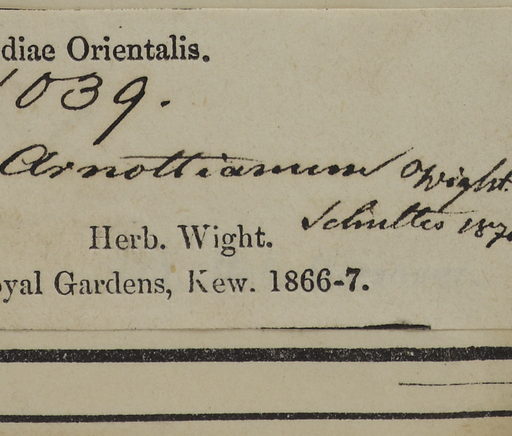 diae Orientalis.
1039.
Arnottianum Wight.
Schultes 187
Herb. Wight.
oyal Gardens, Kew. 1866-7.